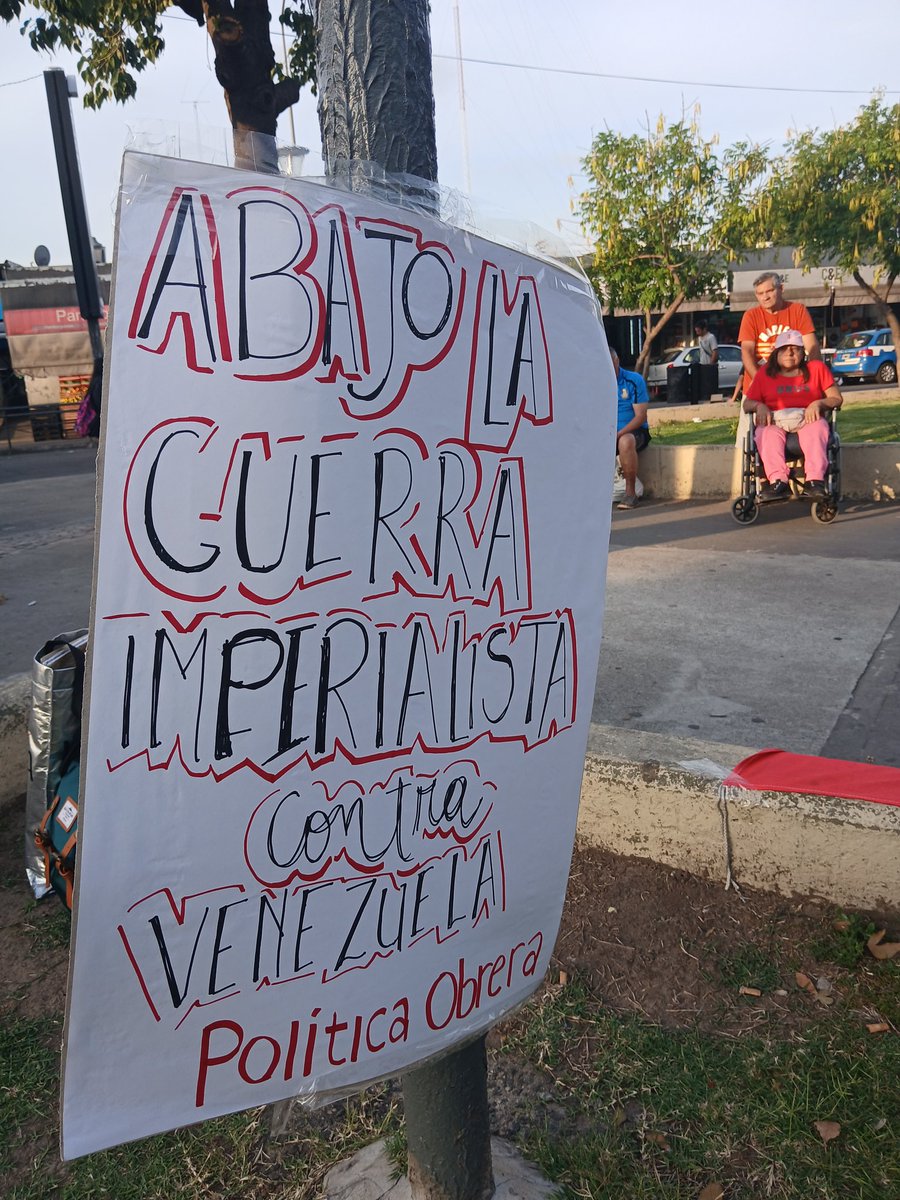 ABAJO LA
GUERRA
IMPERIALISTA
contra
VENEZUELA
Política Obrera